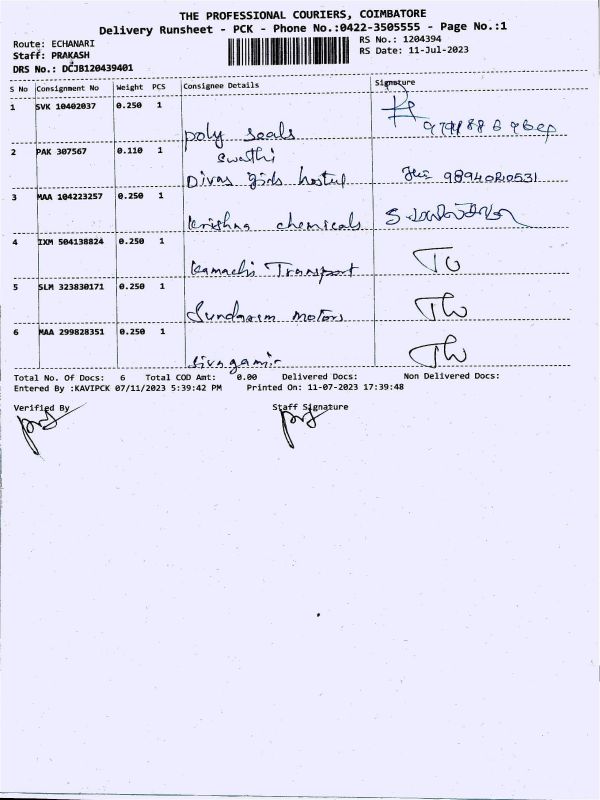 THE PROFESSIONAL COURIERS, COIMBATORE
Delivery Runsheet - PCK - Phone No.:0422-3505555 - Page No.:1
Route: ECHANARI
RS No.: 1204394
Staff: PRAKASH
RS Date: 11-Jul-2023
DRS No.: DCJB120439401
S No Consignment No Weight PCS Consignee Details Signature
1 SVK 10402037 0.250 1
poly seals
2 PAK 307567 0.110 1 Swathi
Divas girls hostel 9894020531
3 MAA 104223257 0.250 1
Krishna chemicals
4 IXM 504138824 0.250 1
Kamachi Transport
5 SLM 323830171 0.250 1
Sundaram motors
6 MAA 299828351 0.250 1
Sivagami
Total No. Of Docs: 6 Total COD Amt: 0.00 Delivered Docs: Non Delivered Docs:
Entered By :KAVIPCK 07/11/2023 5:39:42 PM Printed On: 11-07-2023 17:39:48
Verified By Staff Signature